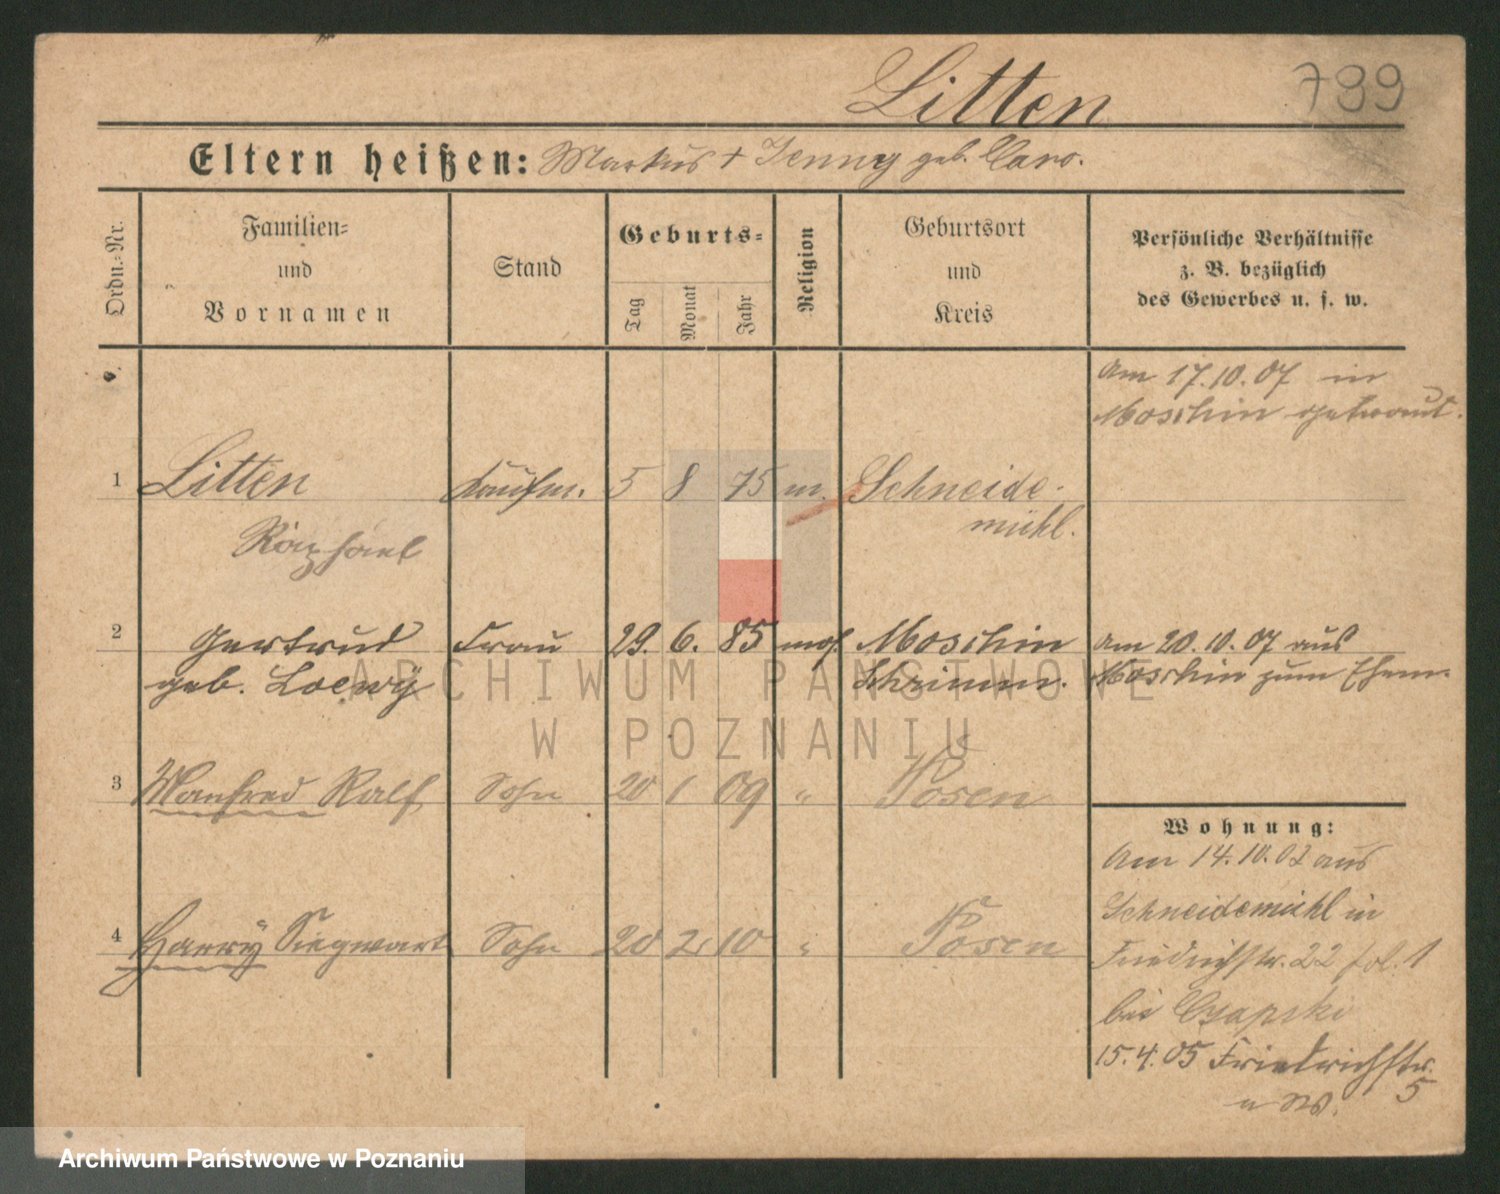 Litten
799
Eltern heißen: Markus + Jenny geb. Caro.
Ordn.-Nr.
Familien-
und
Vornamen
Stand
Geburts-
Tag
Monat
Jahr
Religion
Geburtsort
und
Kreis
Persönliche Verhältnisse
z. B. bezüglich
des Gewerbes u. s. w.
Am 17.10.07 in
Moschin getraut.
1 Litten Kaufm. 5 8 75 m. Schneide-
Raphael mühl.
2 Gertrud Frau 29. 6. 85 mos. Moschin Am 20.10.07 aus
geb. Loewy Schrimm. Moschin zum Ehem.
ARCHIWUM PAŃSTWOWE
W POZNANIU
3 Manfred Ralf Sohn 20 1 09 " Posen
Wohnung:
Am 14.10.02 aus
Schneidemühl in
4 Harry Siegwart Sohn 20 2 10 " Posen
Friedrichstr. 22 1
bei Czapski
15.4.05 Friedrichstr.
5
Archiwum Państwowe w Poznaniu